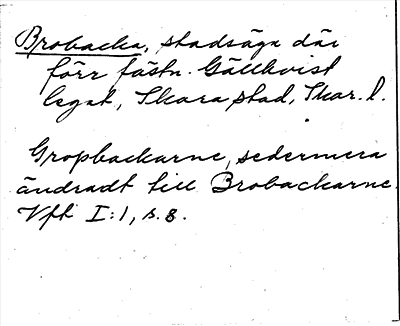 Brobacka, stadsäga där
förr fästn. Gällkvist
legat, Skara stad, Skar. l.
Gropbackarne, sedermera
ändradt till Brobackarne.
Vft I:1, s. 8.